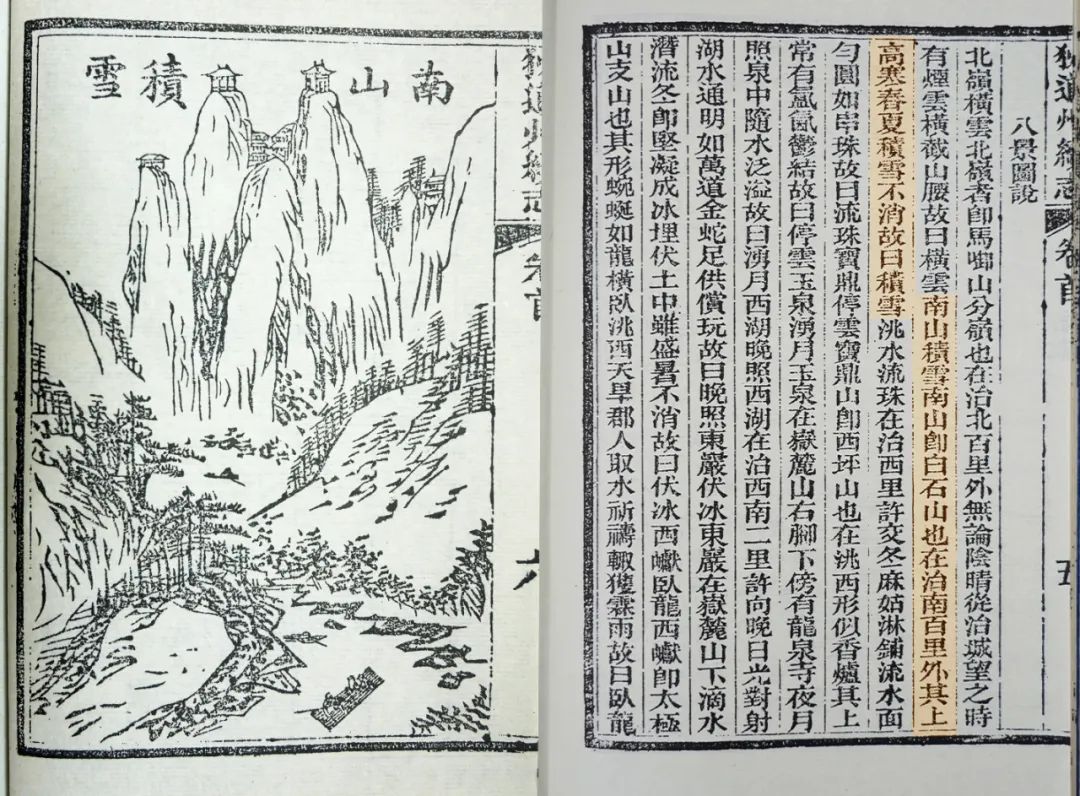 狄道州續志 卷首 五
八景圖說
北嶺橫雲北嶺者卽馬啣山分嶺也在治北百里外無論陰晴從治城望之時
有煙雲橫截山腰故曰橫雲南山積雪南山卽白石山也在治南百里外其上
高寒春夏積雪不消故曰積雪洮水流珠在治西里許交冬麻姑淋鋪流水面
勻圓如串珠故曰流珠寶鼎停雲寶鼎山卽西坪山也在洮西形似香爐其上
常有氤氳鬱結故曰停雲玉泉湧月玉泉在嶽麓山右腳下傍有龍泉寺夜月
照泉中隨水泛溢故曰湧月西湖晚照西湖在治西南一里許向晚日光對射
湖水通明如萬道金蛇足供償玩故曰晚照東巖伏冰東巖在嶽麓山下滴水
潛流冬卽堅凝成冰埋伏土中雖盛暑不消故曰伏冰西巘臥龍西巘卽太極
山支山也其形蜿蜒如龍橫臥洮西天旱郡人取水祈禱輙獲霖雨故曰臥龍
狄道州續志 卷首 六
南山積雪